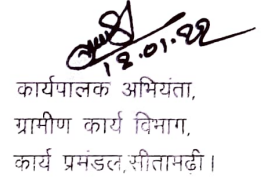 12.01.22
कार्यपालक अभियंता,
ग्रामीण कार्य विभाग,
कार्य प्रमंडल,सीतामढ़ी।